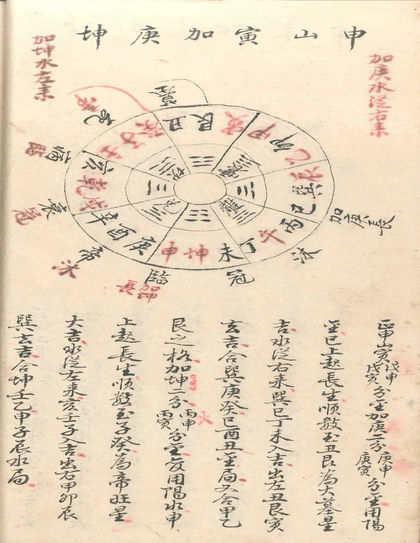 申山寅加庚坤
加庚水從右來
加坤水左來
艮
寅
甲
卯
乙
巽
巳
丙
午
丁
未
坤
申
庚
酉
辛
亥
壬
子
丑
加庚長
冠
臨
加坤長
帝
衰
正申山寅戊申戊寅分金加庚二分庚申庚寅分金用陽
金巳上起長生順數至丑艮為大墓星
吉水從右來巽巳丁未入吉出左丑艮寅
玄吉合巽庚癸巳酉丑金局又合甲乙
艮之格加坤二分丙申丙寅分金宜用陽水申
上起長生順數至子癸為帝旺星
大吉水從左來亥壬子入吉出右甲卯辰
巽玄吉合坤壬乙申子辰水局